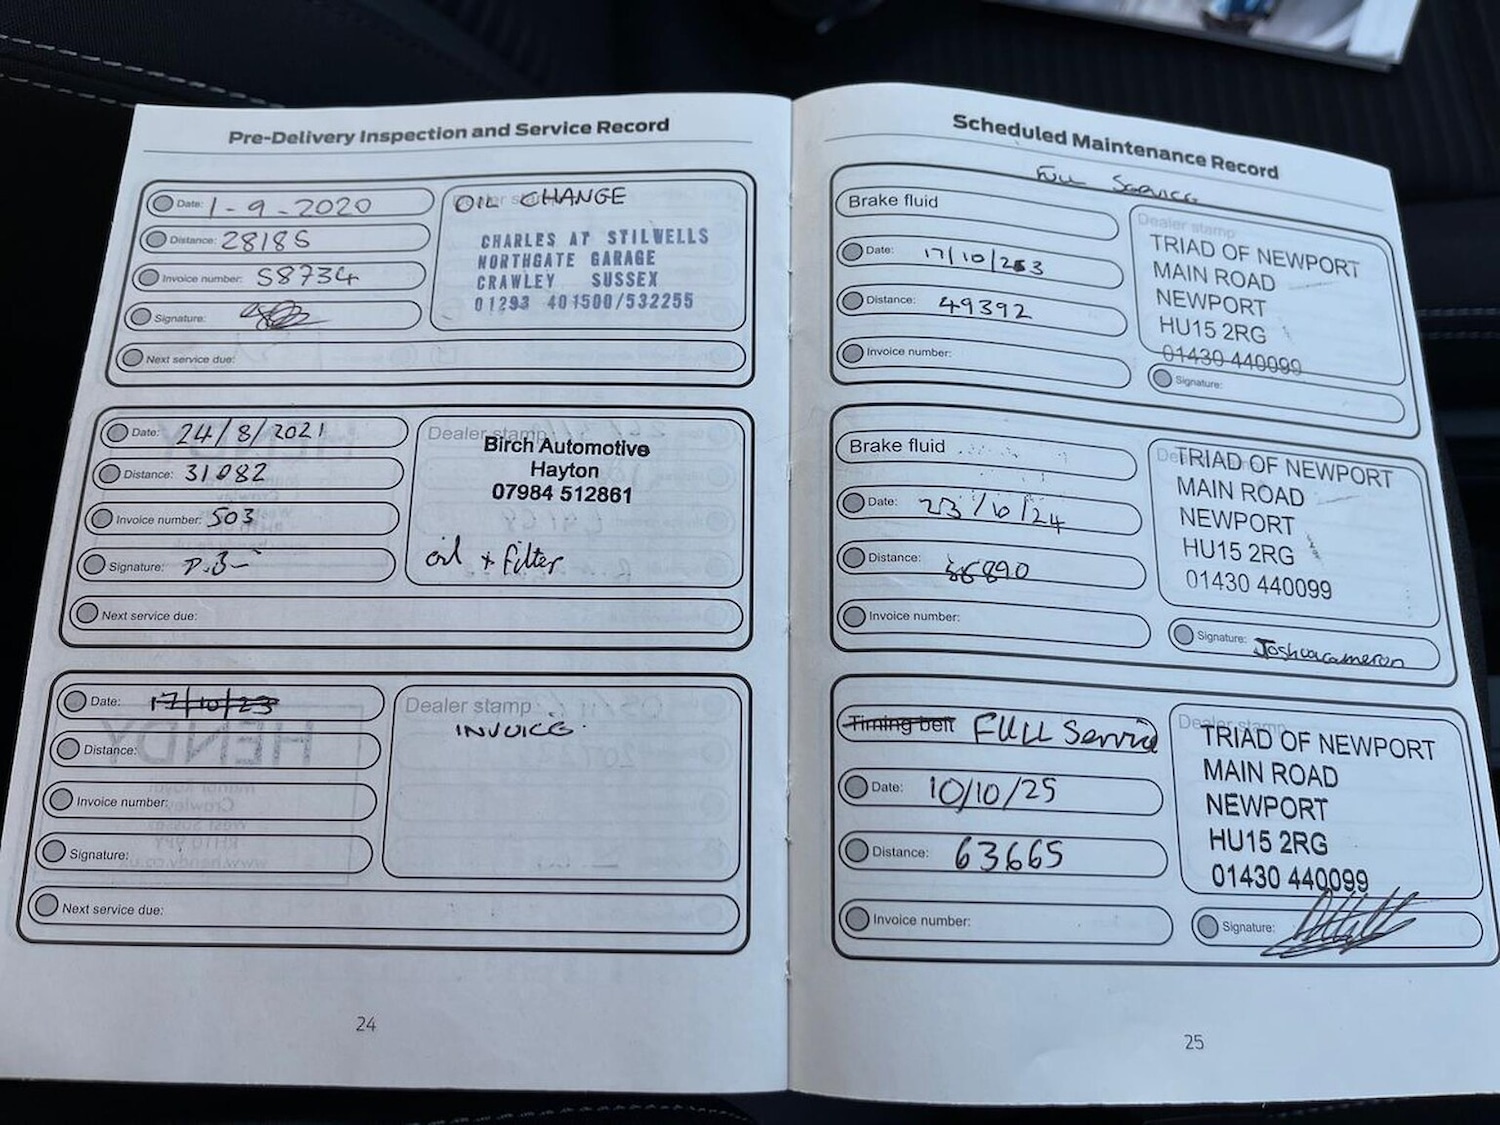 Pre-Delivery Inspection and Service Record
Date: 1-9-2020
Distance: 28186
Invoice number: S8734
Signature:
Next service due:
OIL CHANGE
CHARLES AT STILWELLS
NORTHGATE GARAGE
CRAWLEY SUSSEX
01293 401500/532255
Date: 24/8/2021
Distance: 31082
Invoice number: 503
Signature: P.B-
Next service due:
Dealer stamp
Birch Automotive
Hayton
07984 512861
oil + filter
Date: 17/10/23
Distance:
Invoice number:
Signature:
Next service due:
Dealer stamp
INVOICE.
HENDY
24
Scheduled Maintenance Record
FULL SERVICE
Brake fluid
Date: 17/10/23
Distance: 49392
Invoice number:
Dealer stamp
TRIAD OF NEWPORT
MAIN ROAD
NEWPORT
HU15 2RG
01430 440099
Signature:
Brake fluid
Date: 23/10/24
Distance: 56890
Invoice number:
Dealer stamp
TRIAD OF NEWPORT
MAIN ROAD
NEWPORT
HU15 2RG
01430 440099
Signature: Joshuacameron
Timing belt FULL Service
Date: 10/10/25
Distance: 63665
Invoice number:
Dealer stamp
TRIAD OF NEWPORT
MAIN ROAD
NEWPORT
HU15 2RG
01430 440099
Signature:
25